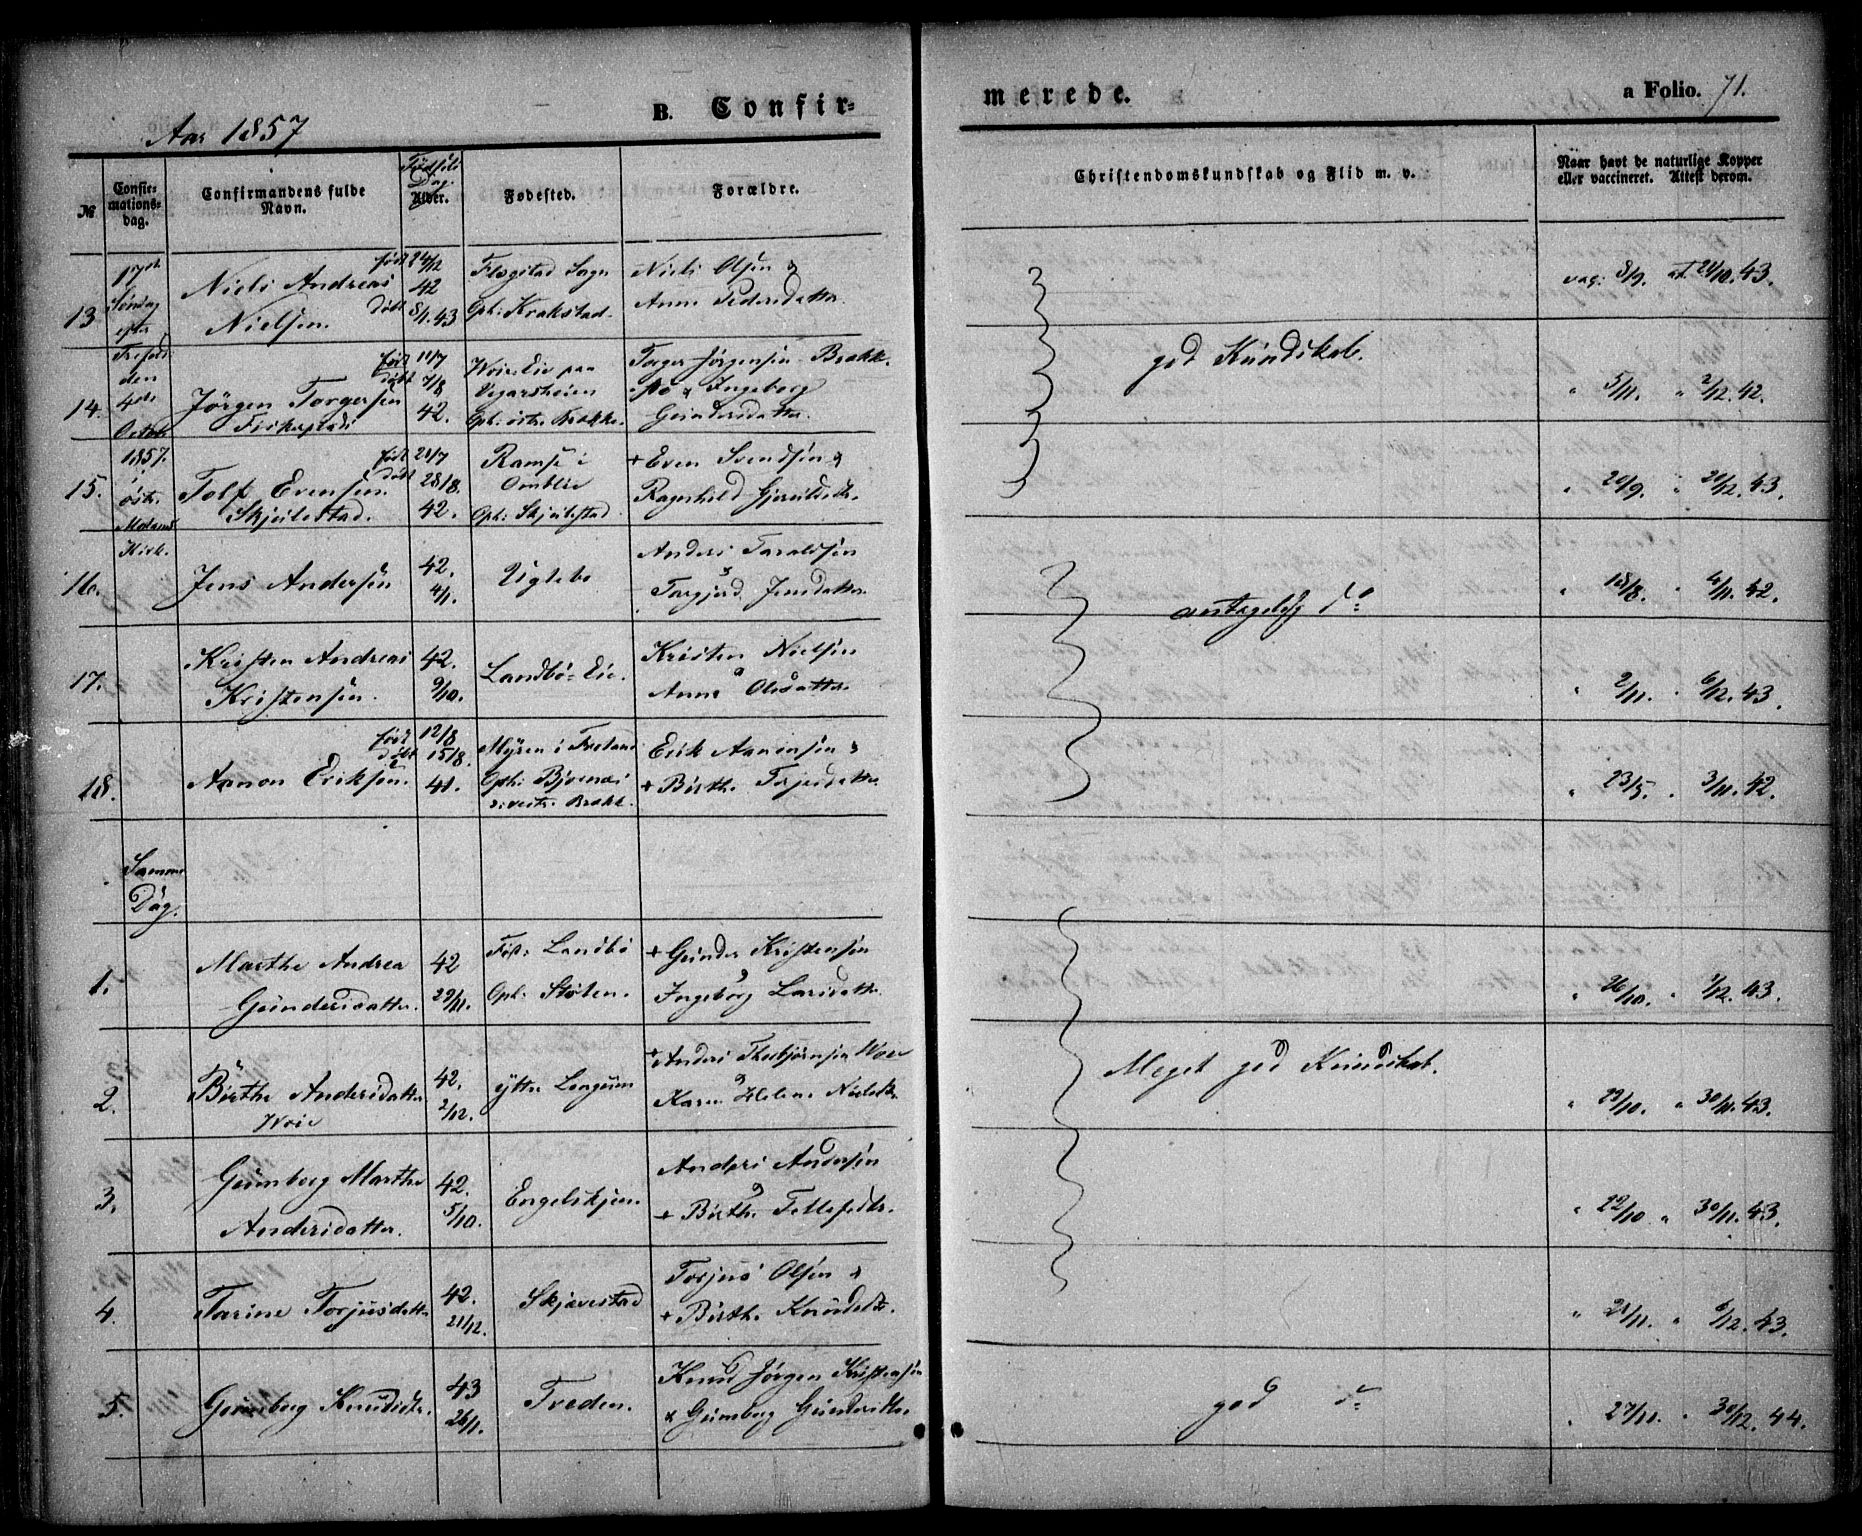 Aar 1857
B. Confir-
merede.
a Folio. 71.
№
Confir-
mations-
dag.
Confirmandens fulde
Navn.
Fødsels
Dag.
Alder.
Fødested.
Forældre.
Christendomskundskab og Flid m. v.
Naar havt de naturlige Kopper
eller vaccineret. Attest derom.
17de
Søndag
efter
Trefol-
den
4de
Octob.
1857.
østre
Molands
Kirke.
13 Niels Andreas Nielsen.
født 24/12 42
døbt 8/1. 43
Flagstad Sogn
Oph: Krakstad.
Niels Olsen &
Anne Pedersdatter.
vac: 8/9. at. 24/10. 43.
god Kundskab.
14. Jørgen Torgersen
født 11/7
døbt 7/8
42.
paa
Vegarsheien
Oph: østre Brække.
Torger Jørgensen Brække-
& Ingeborg
Gundersdatter.
" 5/11. " 2/12. 42.
15. Tolf Evensen
Skjulestad.
født 21/7
døbt 28/8.
42.
Ramse i
Omblie
Oph: Skjulestad
+ Even Svendsen &
Ragnhild Gjeruldsdtr.
" 20/9. " 20/12. 43.
16. Jens Andersen
42.
4/1.
Uglebo
Anders Taraldsen
&
Torgjerd Jensdatter.
antagelig do
" 18/8. " 4/11. 42.
17. Kristen Andreas
Kristensen.
42.
9/10.
Landbø-Eie.
Kristen Nielsen
&
Anne Olsdatter
" 2/11. " 6/12. 43.
18. Aanon Eriksen.
født 12/8
døbt 15/8.
41.
Myren i Froland
Oph: Bjørnaas
v. vestre Brække.
Erik Aanonsen &
+ Birthe Torjesdatter.
" 23/5. " 3/11. 42.
Samme
Dag.
1. Marthe Andrea
Gundersdatter.
42
29/11.
Fød: Landbø
Oph: Støten.
+ Gunder Kristensen
&
Ingeborg Larsdatter.
" 26/10. " 1/12. 43.
2. Birthe Andersdatter
Woie
42.
2/12.
ytre Longum
+ Anders Thorbjørnsen Woie
&
Karen Helene Nielsdtr
Meget god Kundskab.
" 29/10. " 30/11. 43.
3. Gunborg Marthe
Andersdatter.
42.
5/10.
Engelskjøn
Anders Andersen
&
+ Birthe Tellefsdtr.
" 22/10 " 30/11. 43.
4. Tarine Torjusdatter
42.
21/12.
Skjævestad
Torjus Olsen &
+ Birthe Knudsdtr.
" 21/11. " 9/12. 43.
5. Gunborg Knudsdtr.
43
26/1.
Treden.
Knud Jørgen Kristensen
& Gunborg Gundersdtr.
god do
" 27/11. " 30/12. 44.